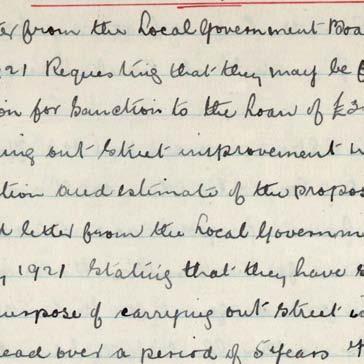 ter from the Local Government Boa
21 Requesting that they may be
on for Sanction to the Loan of £3
ing out Street improvement w
tion and estimate of the propos
d letter from the Local Governme
, 1921 Stating that they have s
urpose of carrying out Street
ead over a period of 5 years